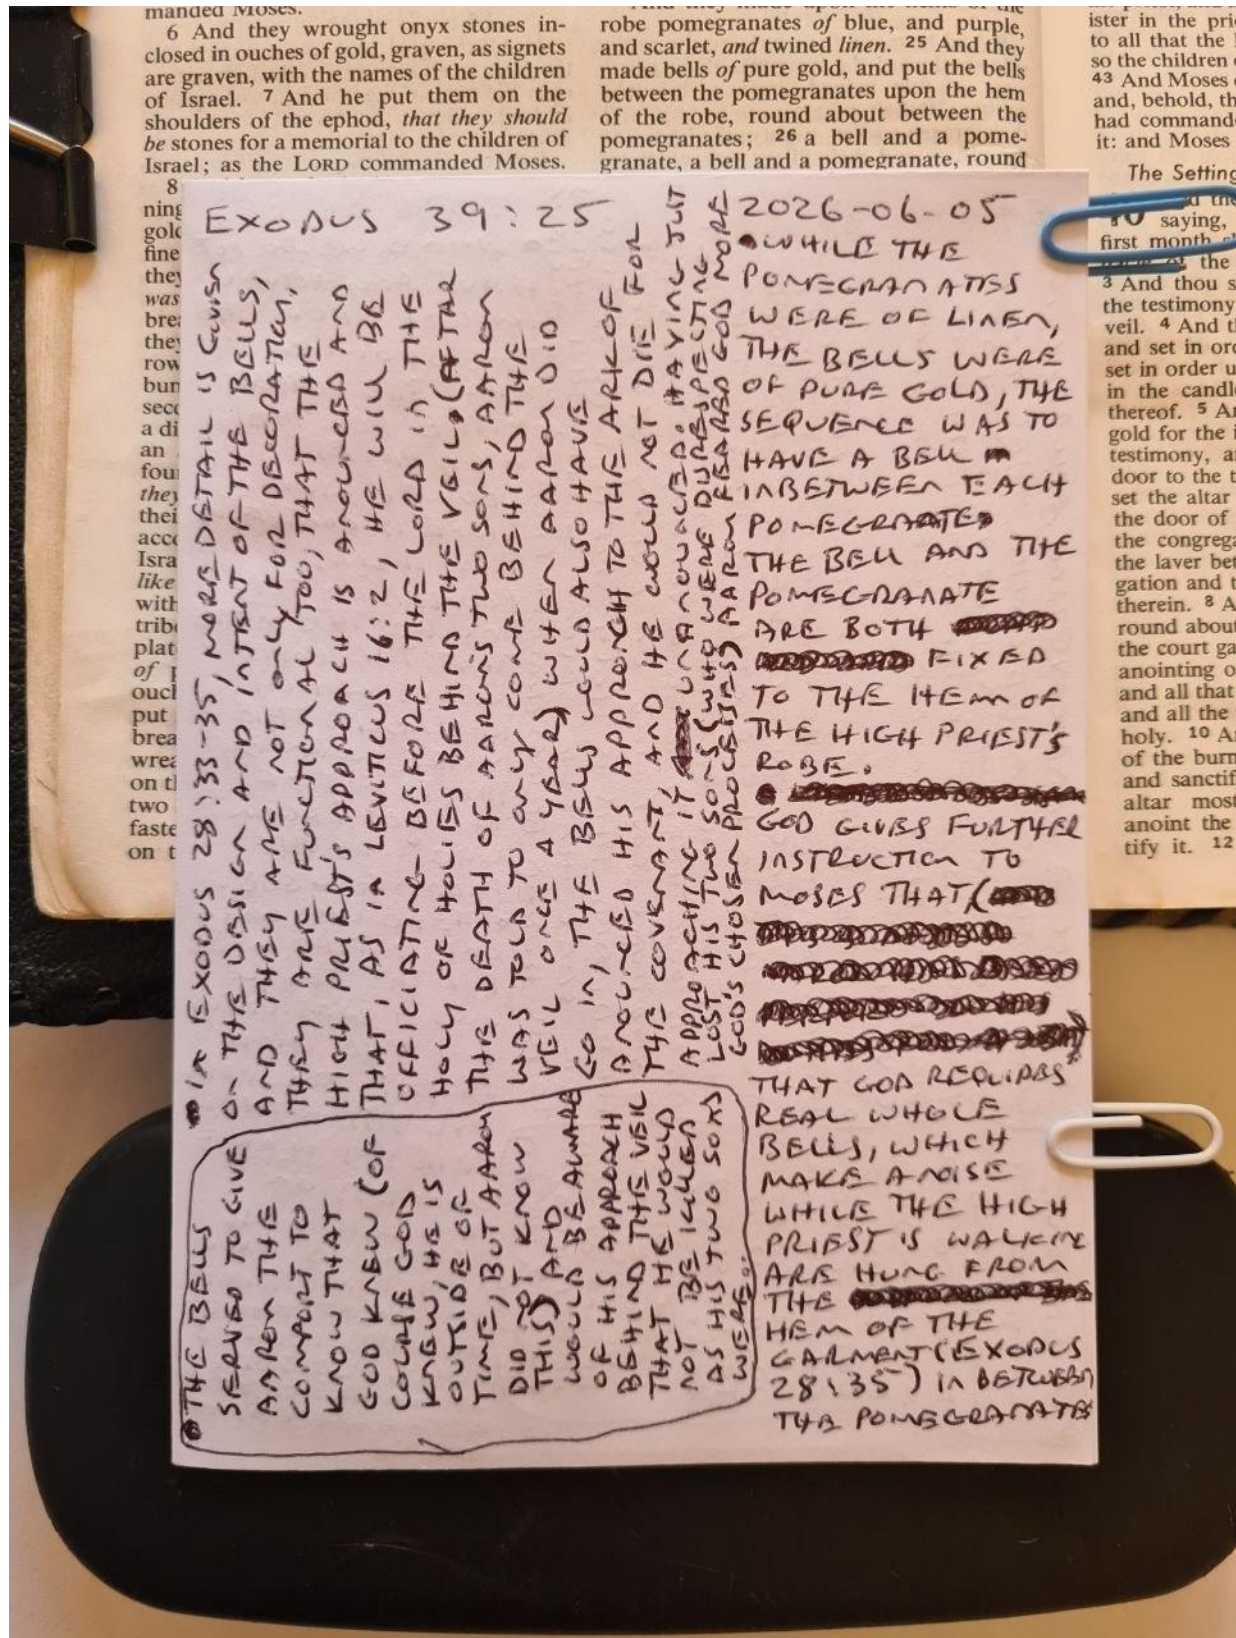 manded Moses.
6 And they wrought onyx stones in-
closed in ouches of gold, graven, as signets
are graven, with the names of the children
of Israel. 7 And he put them on the
shoulders of the ephod, that they should
be stones for a memorial to the children of
Israel; as the LORD commanded Moses.
8
ning
gold
fine
they
was
brea
they
row
bun
seco
a di
an
four
they
thei
acco
Isra
like
with
tribe
plat
of
ouch
put
brea
wrea
on th
two
faste
on t
robe pomegranates of blue, and purple,
and scarlet, and twined linen. 25 And they
made bells of pure gold, and put the bells
between the pomegranates upon the hem
of the robe, round about between the
pomegranates; 26 a bell and a pome-
granate, a bell and a pomegranate, round
ister in the prie
to all that the
so the children
43 And Moses
and, behold, th
had commande
it: and Moses
The Setting
saying,
first month
of the
3 And thou s
the testimony
veil. 4 And th
and set in ord
set in order u
in the candl
thereof. 5 An
gold for the i
testimony, a
door to the t
set the altar
the door of
the congrega
the laver bet
gation and t
therein. 8 A
round about
the court ga
anointing o
and all that
and all the
holy. 10 An
of the burn
and sanctif
altar most
anoint the
tify it. 12
EXODUS 39:25
2026-06-05
• WHILE THE
POMEGRANATES
WERE OF LINEN,
THE BELLS WERE
OF PURE GOLD, THE
SEQUENCE WAS TO
HAVE A BELL
INBETWEEN EACH
POMEGRANATE
THE BELL AND THE
POMEGRANATE
ARE BOTH
FIXED
TO THE HEM OF
THE HIGH PRIEST'S
ROBE.
•
GOD GIVES FURTHER
INSTRUCTION TO
MOSES THAT, (
)
THAT GOD REQUIRES
REAL WHOLE
BELLS, WHICH
MAKE A NOISE
WHILE THE HIGH
PRIEST IS WALKING
ARE HUNG FROM
THE
HEM OF THE
GARMENT (EXODUS
28:35) IN BETWEEN
THE POMEGRANATES
• IN EXODUS 28:33-35, MORE DETAIL IS GIVEN
ON THE DESIGN AND INTENT OF THE BELLS,
AND THEY ARE NOT ONLY FOR DECORATION,
THEY ARE FUNCTIONAL TOO, THAT THE
HIGH PRIEST'S APPROACH IS ANOUNCED AND
THAT, AS IN LEVITICUS 16:2, HE WILL BE
OFFICIATING BEFORE THE LORD IN THE
HOLY OF HOLIES BEHIND THE VEIL, (AFTAR
THE DEATH OF AARON'S TWO SONS, AARON
WAS TOLD TO ONLY COME BEHIND THE
VEIL ONCE A YEAR) WHEN AARON DID
GO IN, THE BELLS WOULD ALSO HAVE
ANOUNCED HIS APPROACH TO THE ARK OF
THE COVENANT, AND HE WOULD NOT DIE FOR
APPROACHING IT UNANOUNCED. HAVING JUST
LOST HIS TWO SONS (WHO WERE DISRESPECTING
GOD'S CHOSEN PROCESSES) AARON FEARED GOD MORE
• THE BELLS
SERVED TO GIVE
AARON THE
COMFORT TO
KNOW THAT
GOD KNEW (OF
COURSE GOD
KNEW, HE IS
OUTSIDE OF
TIME, BUT AARON
DID NOT KNOW
THIS) AND
WOULD BE AWARE
OF HIS APPROACH
BEHIND THE VEIL
THAT HE WOULD
NOT BE KILLED
AS HIS TWO SONS
WERE..